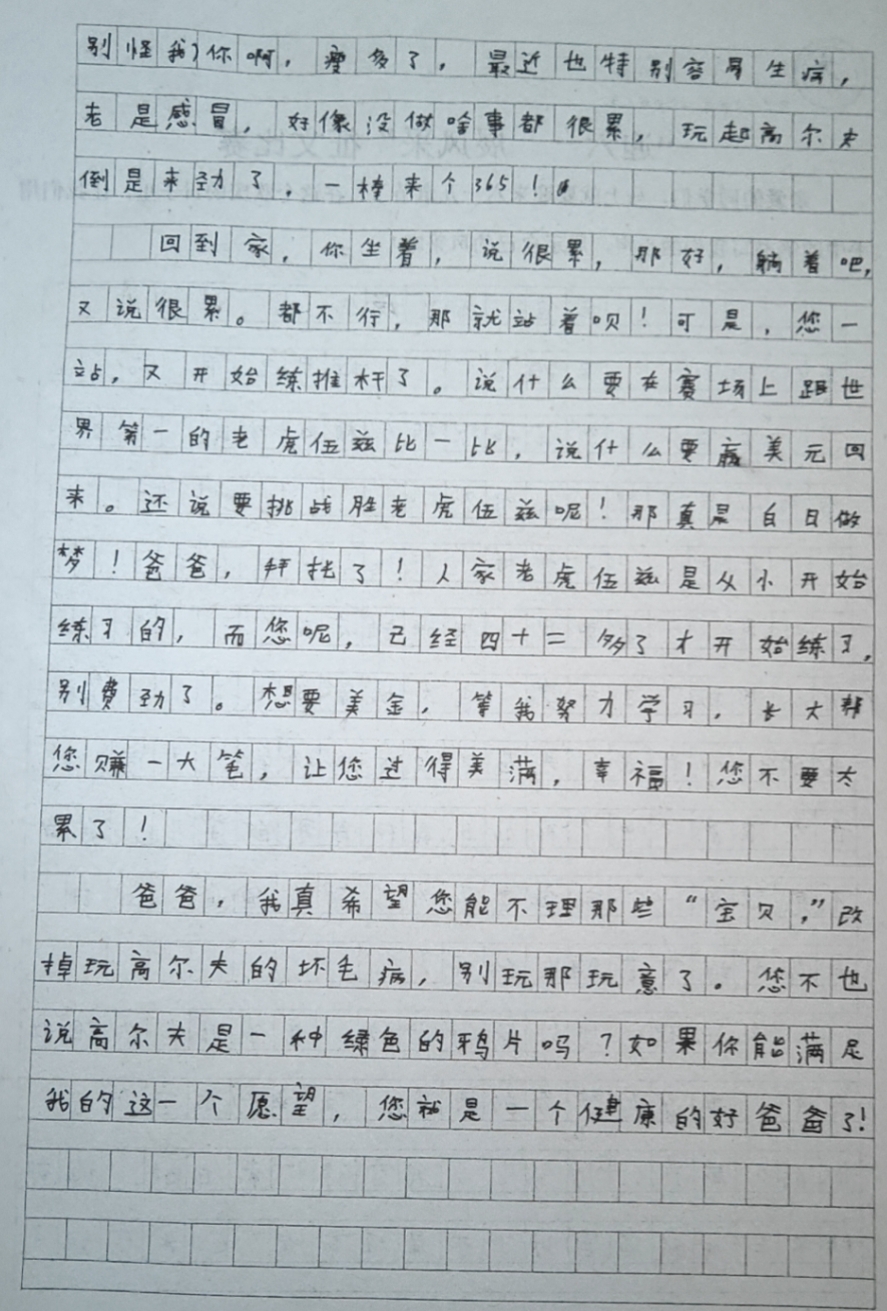 别怪我)你啊，瘦多了，最近也特别容易生病，
老是感冒，好像没做啥事都很累，玩起高尔夫
倒是来劲了，一棒来个365！
回到家，你坐着，说很累，那好，躺着吧，
又说很累。都不行，那就站着呗！可是，您一
站，又开始练推杆了。说什么要在赛场上跟世
界第一的老虎伍兹比一比，说什么要赢美元回
来。还说要挑战胜老虎伍兹呢！那真是白日做
梦！爸爸，拜托了！人家老虎伍兹是从小开始
练习的，而您呢，已经四十二多了才开始练习，
别费劲了。想要美金，等我努力学习，长大帮
您赚一大笔，让您过得美满，幸福！您不要太
累了！
爸爸，我真希望您能不理那些“宝贝，”改
掉玩高尔夫的坏毛病，别玩那玩意了。您不也
说高尔夫是一种绿色的鸦片吗？如果你能满足
我的这一个愿望，您就是一个健康的好爸爸了！